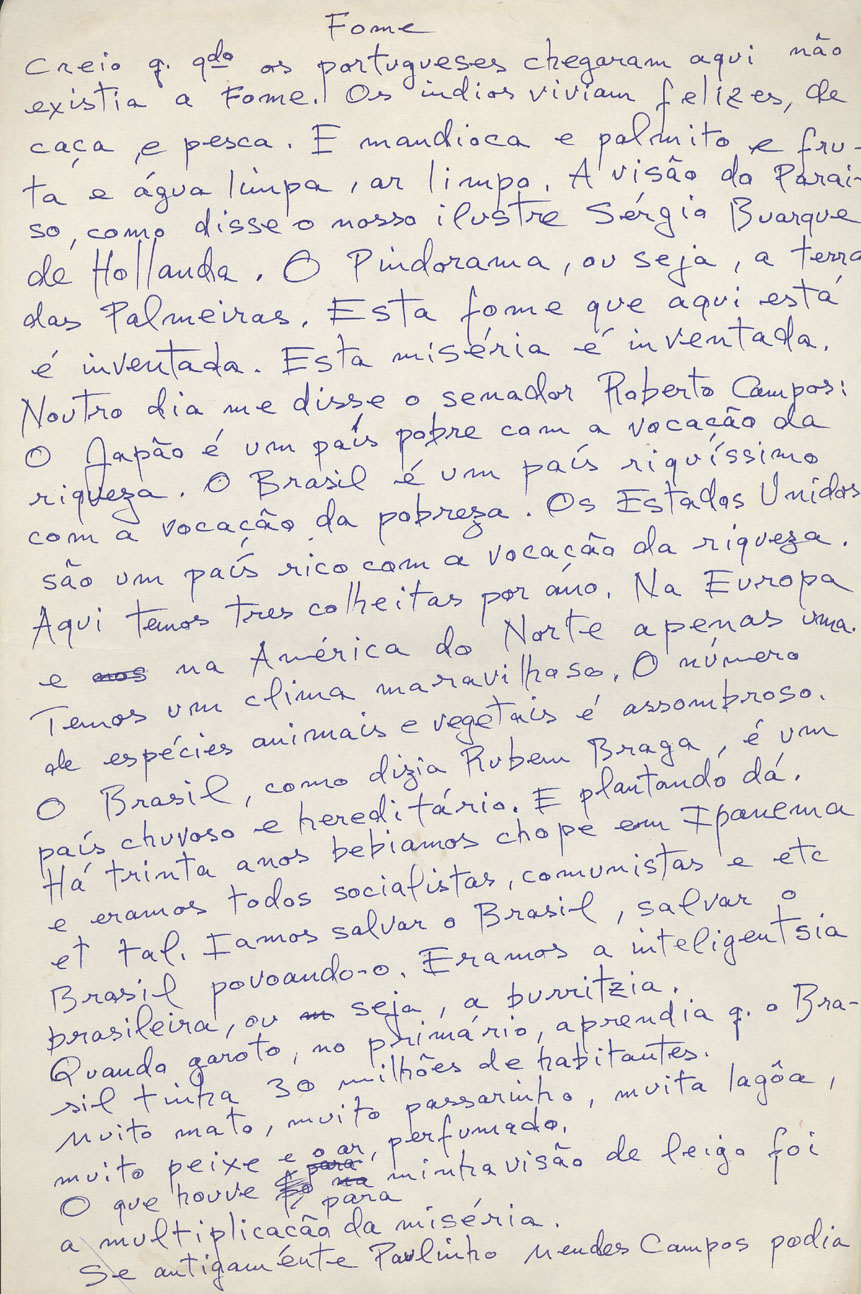 Fome
Creio q. qdo os portugueses chegaram aqui não
existia a Fome. Os índios viviam felizes, de
caça, e pesca. E mandioca e palmito e fru-
ta e água limpa, ar limpo. A visão do Parai-
so, como disse o nosso ilustre Sérgio Buarque
de Hollanda. O Pindorama, ou seja, a terra
das Palmeiras. Esta fome que aqui está
é inventada. Esta miséria é inventada.
Noutro dia me disse o senador Roberto Campos:
O Japão é um país pobre com a vocação da
riqueza. O Brasil é um país riquíssimo
com a vocação da pobreza. Os Estados Unidos
são um país rico com a vocação da riqueza.
Aqui temos tres colheitas por ano. Na Europa
e nos na América do Norte apenas uma.
Temos um clima maravilhoso. O número
de espécies animais e vegetais é assombroso.
O Brasil, como dizia Rubem Braga, é um
país chuvoso e hereditário. E plantando dá.
Há trinta anos bebiamos chope em Ipanema
e eramos todos socialistas, comunistas e etc
et tal. Iamos salvar o Brasil, salvar o
Brasil povoando-o. Eramos a inteligentsia
brasileira, ou seja, a burritzia.
Quando garoto, no primário, aprendia q. o Bra-
sil tinha 30 milhões de habitantes.
Muito mato, muito passarinho, muita lagôa,
muito peixe e o ar, perfumado.
O que houve para minha visão de leigo foi
a multiplicação da miséria.
Se antigamente Paulinho Mendes Campos podia